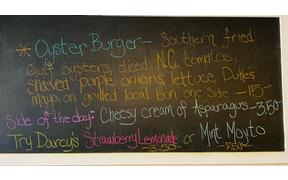 * Oyster Burger - Southern fried
Gulf oysters, diced N.C. tomatos,
shaved purple onions, lettuce, Duke's
mayo on grilled local bun one side - 15-
Side of the day: Cheesy cream of Asparagus - 3.50-
Try Darcy's Strawberry Lemonade or Mint Moyto
3.50 7.50